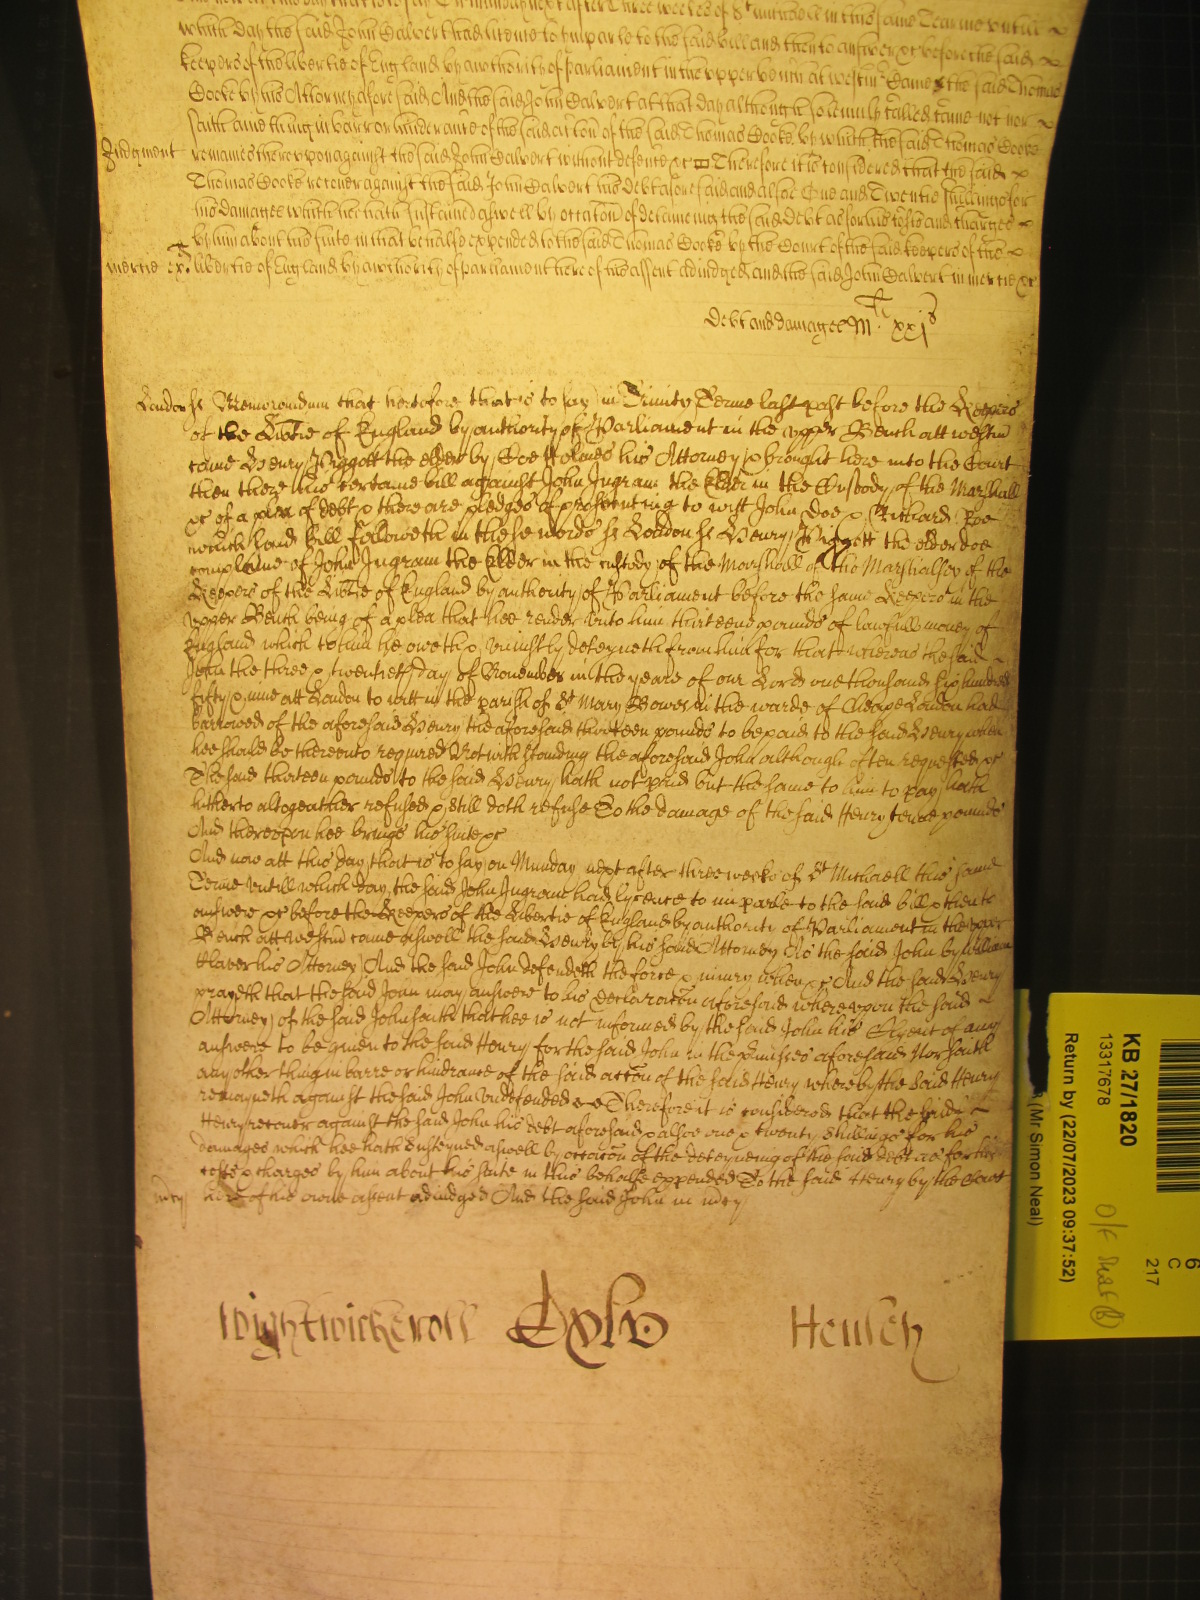 which day the said John Calvert had licence to imparle to the said bill and then to answer &c before the said
keepers of the libertie of England by authority of Parliament in the upper bench at westm̃ Came the said Thomas
Cocke by his Attorney aforesaid And the said John Calvert at that day although solemnly called came not nor
saith any thing in barr or hinderance of the said accõn of the said Thomas Cocke by which the said Thomas Cocke
Judgment remaines thereupon against the said John Calvert without defence &c Therefore it is considered that the said
Thomas Cocke recover against the said John Calvert his debt aforesaid and alsoe One and Twentie shillings for
his damages which hee hath sustained aswell by occacõn of deteineing the said debt as for his costs and charges
by him about his suite in that behalfe expended to the said Thomas Cocke by the Court of the said keepers of the
mercie &c libertie of England by authority of parliament here of his assent adiudged and the said John Calvert in mercie &c
Debt and damages M li xxj s
London ss Memorandum that heretofore that is to say in Trinity Terme last past before the Keepers
of the Libtie of England by authority of Parliament in the upper Bench att westm̃
came Henry Piggott the elder by Holmes his Attorney & brought here into the Court
then there his certaine bill against John Ingram the Elder in the Custody of the Marshall
&c of a plea of debt & there are pledges of prosecuting to witt John Doe & Richard Roe
which said bill followeth in these words ss London ss Henry Piggott the elder doe
complaine of John Ingram the Elder in the custody of the Marshall of the Marshalsey of the
Keepers of the Libtie of England by authority of Parliament before the same Keepers in the
upper Bench being of a plea that hee render unto him thirteene pounds of lawfull money of
England which to him he oweth & uniustly deteyneth from him for that whereas the said
John the three & twentieth day of November in the yeare of our Lord one thousand six hundred
fifty & nine att London to witt in the parish of St Mary Bowe in the warde of Cheape London had
borrowed of the aforesaid Henry the aforesaid thirteen pounds to be paid to the said Henry when
hee should be thereunto required Notwithstanding the aforesaid John although often requested &c
The said thirteen pounds to the said Henry hath not paid but the same to him to pay hath
hitherto altogeather refused & still doth refuse To the damage of the said Henry tenne pounds
And thereupon hee brings his suite &c
And now att this day that is to say on Munday next after three weeks of St Michaell this same
Terme untill which day the said John Ingram had lycence to imparle to the said bill & then to
answere &c before the Keepers of the Libertie of England by authority of Parliament in the upper
Bench att westm̃ came aswell the said Henry by his said Attorney As the said John by William
his Attorney And the said John defendeth the force & iniury when &c And the said Henry
prayeth that the said John may answere to his declaracõn aforesaid whereupon the said
Attorney of the said John saith that hee is not informed by the said John his Clyent of any
answere to be given to the said Henry for the said John in the p̃misses aforesaid Nor saith
any other thing in barre or hindrance of the said accõn of the said Henry whereby the said Henry
remayneth against the said John Undefended &c Therefore it is considered that the said
Henry recover against the said John his debt aforesaid & alsoe one & twenty shillings for his
damages which hee hath susteyned aswell by occacõn of the deteyneing of the said debt as for his
costs & charges by him about his suite in this behalfe expended To the said Henry by the Court
mcy here of his owne assent adiudged And the said John in mcy
Wightwicke roll Cxlv Henley
KB 27/1820
13317678
Return by (22/07/2023 09:37:52)
(Mr Simon Neal)
6
C
217